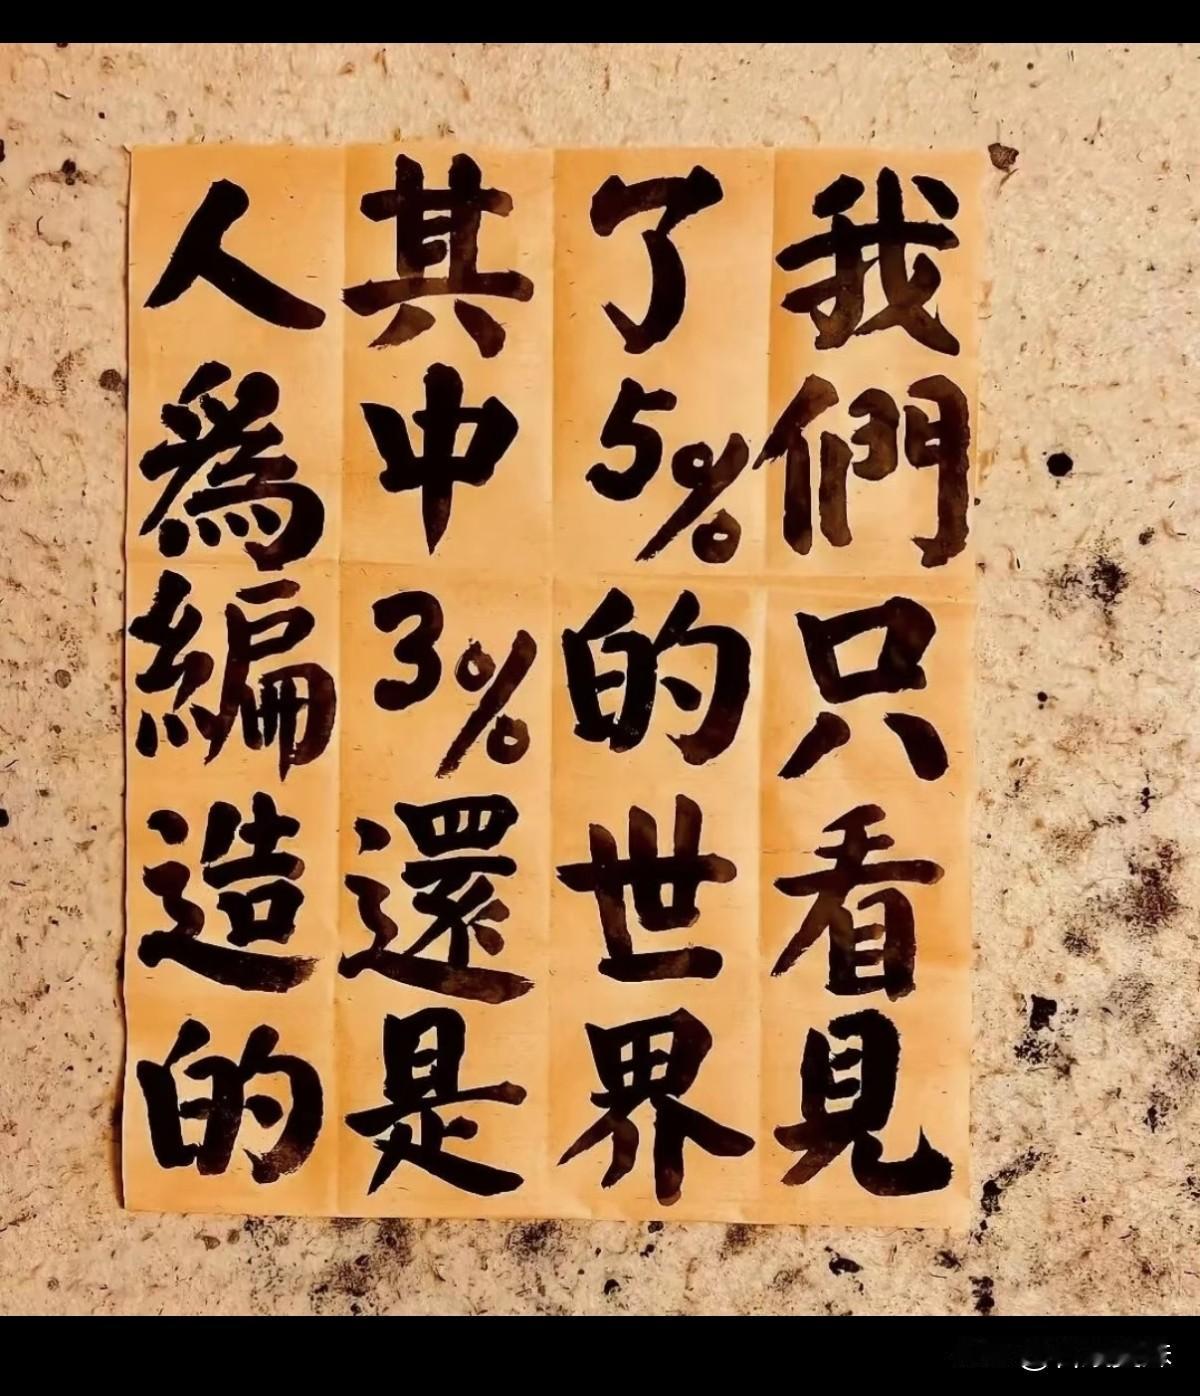 我們只看見
了5%的世界
其中3%還是
人爲編造的